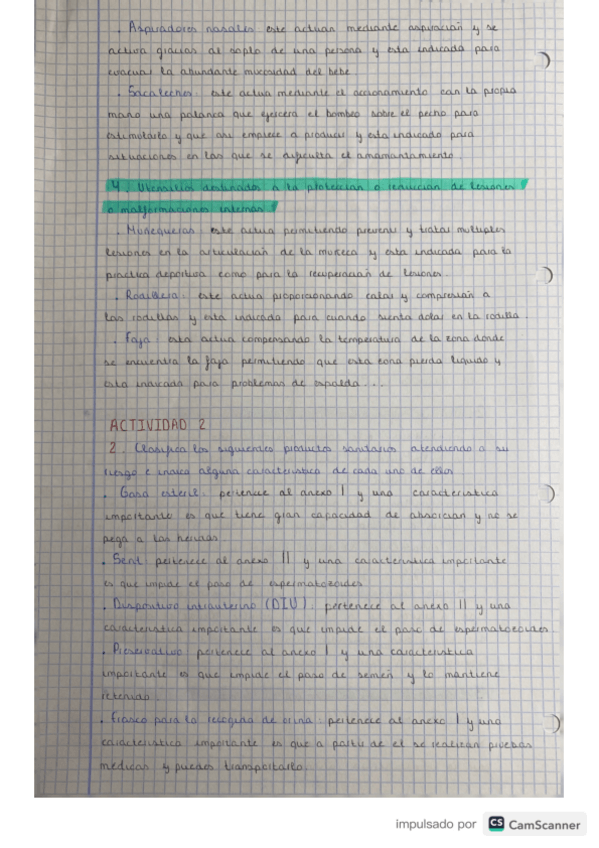 . Aspiradores nasales este actuan mediante aspiración y se
activa gracias al soplo de una persona y esta indicada para
evacuar la abundante mucosidad del bebe.
. Sacaleches: este actua mediante el accionamiento con la propia
mano una palanca que ejercera el bombeo sobre el pecho para
estimularlo y que asi empiece a producir y esta indicado para
situaciones en las que se dificulta el amamantamiento.
4. Utensilios destinados a la protección o reducción de lesiones
o malformaciones internas
. Muñequeras: este actua permitiendo prevenir y tratar multiples
lesiones en la articulación de la muñeca y esta indicada para la
practica deportiva como para la recuperación de lesiones.
. Rodillera: este actua proporcionando calor y compresión a
las rodillas y está indicada para cuando sienta dolor en la rodilla.
. Faja: esta actua compensando la temperatura de la zona donde
se encuentra la faja permitiendo que esta zona pierda liquido y
esta indicada para problemas de espalda...
ACTIVIDAD 2
2. Clasifica los siguientes productos sanitarios atendiendo a su
riesgo e indica alguna caracteristica de cada uno de ellos
. Gasa esteril: pertenece al anexo I y una caracteristica
importante es que tiene gran capacidad de absorción y no se
pega a las heridas.
pertenece al anexo II y una caracteristica importante
es que impide el paso de espermatozoides
. Dispositivo intrauterino (DIU): pertenece al anexo II y una
caracteristica importante es que impide el paso de espermatozoides
. Preservativo: pertenece al anexo I y una caracteristica
importante es que impide el paso de semen y lo mantiene
retenido.
. Frasco para la recogida de orina: pertenece al anexo I y una
caracteristica importante es que a partir de el se realizan pruebas
medicas y puedes transportarlo.
impulsado por CS CamScanner